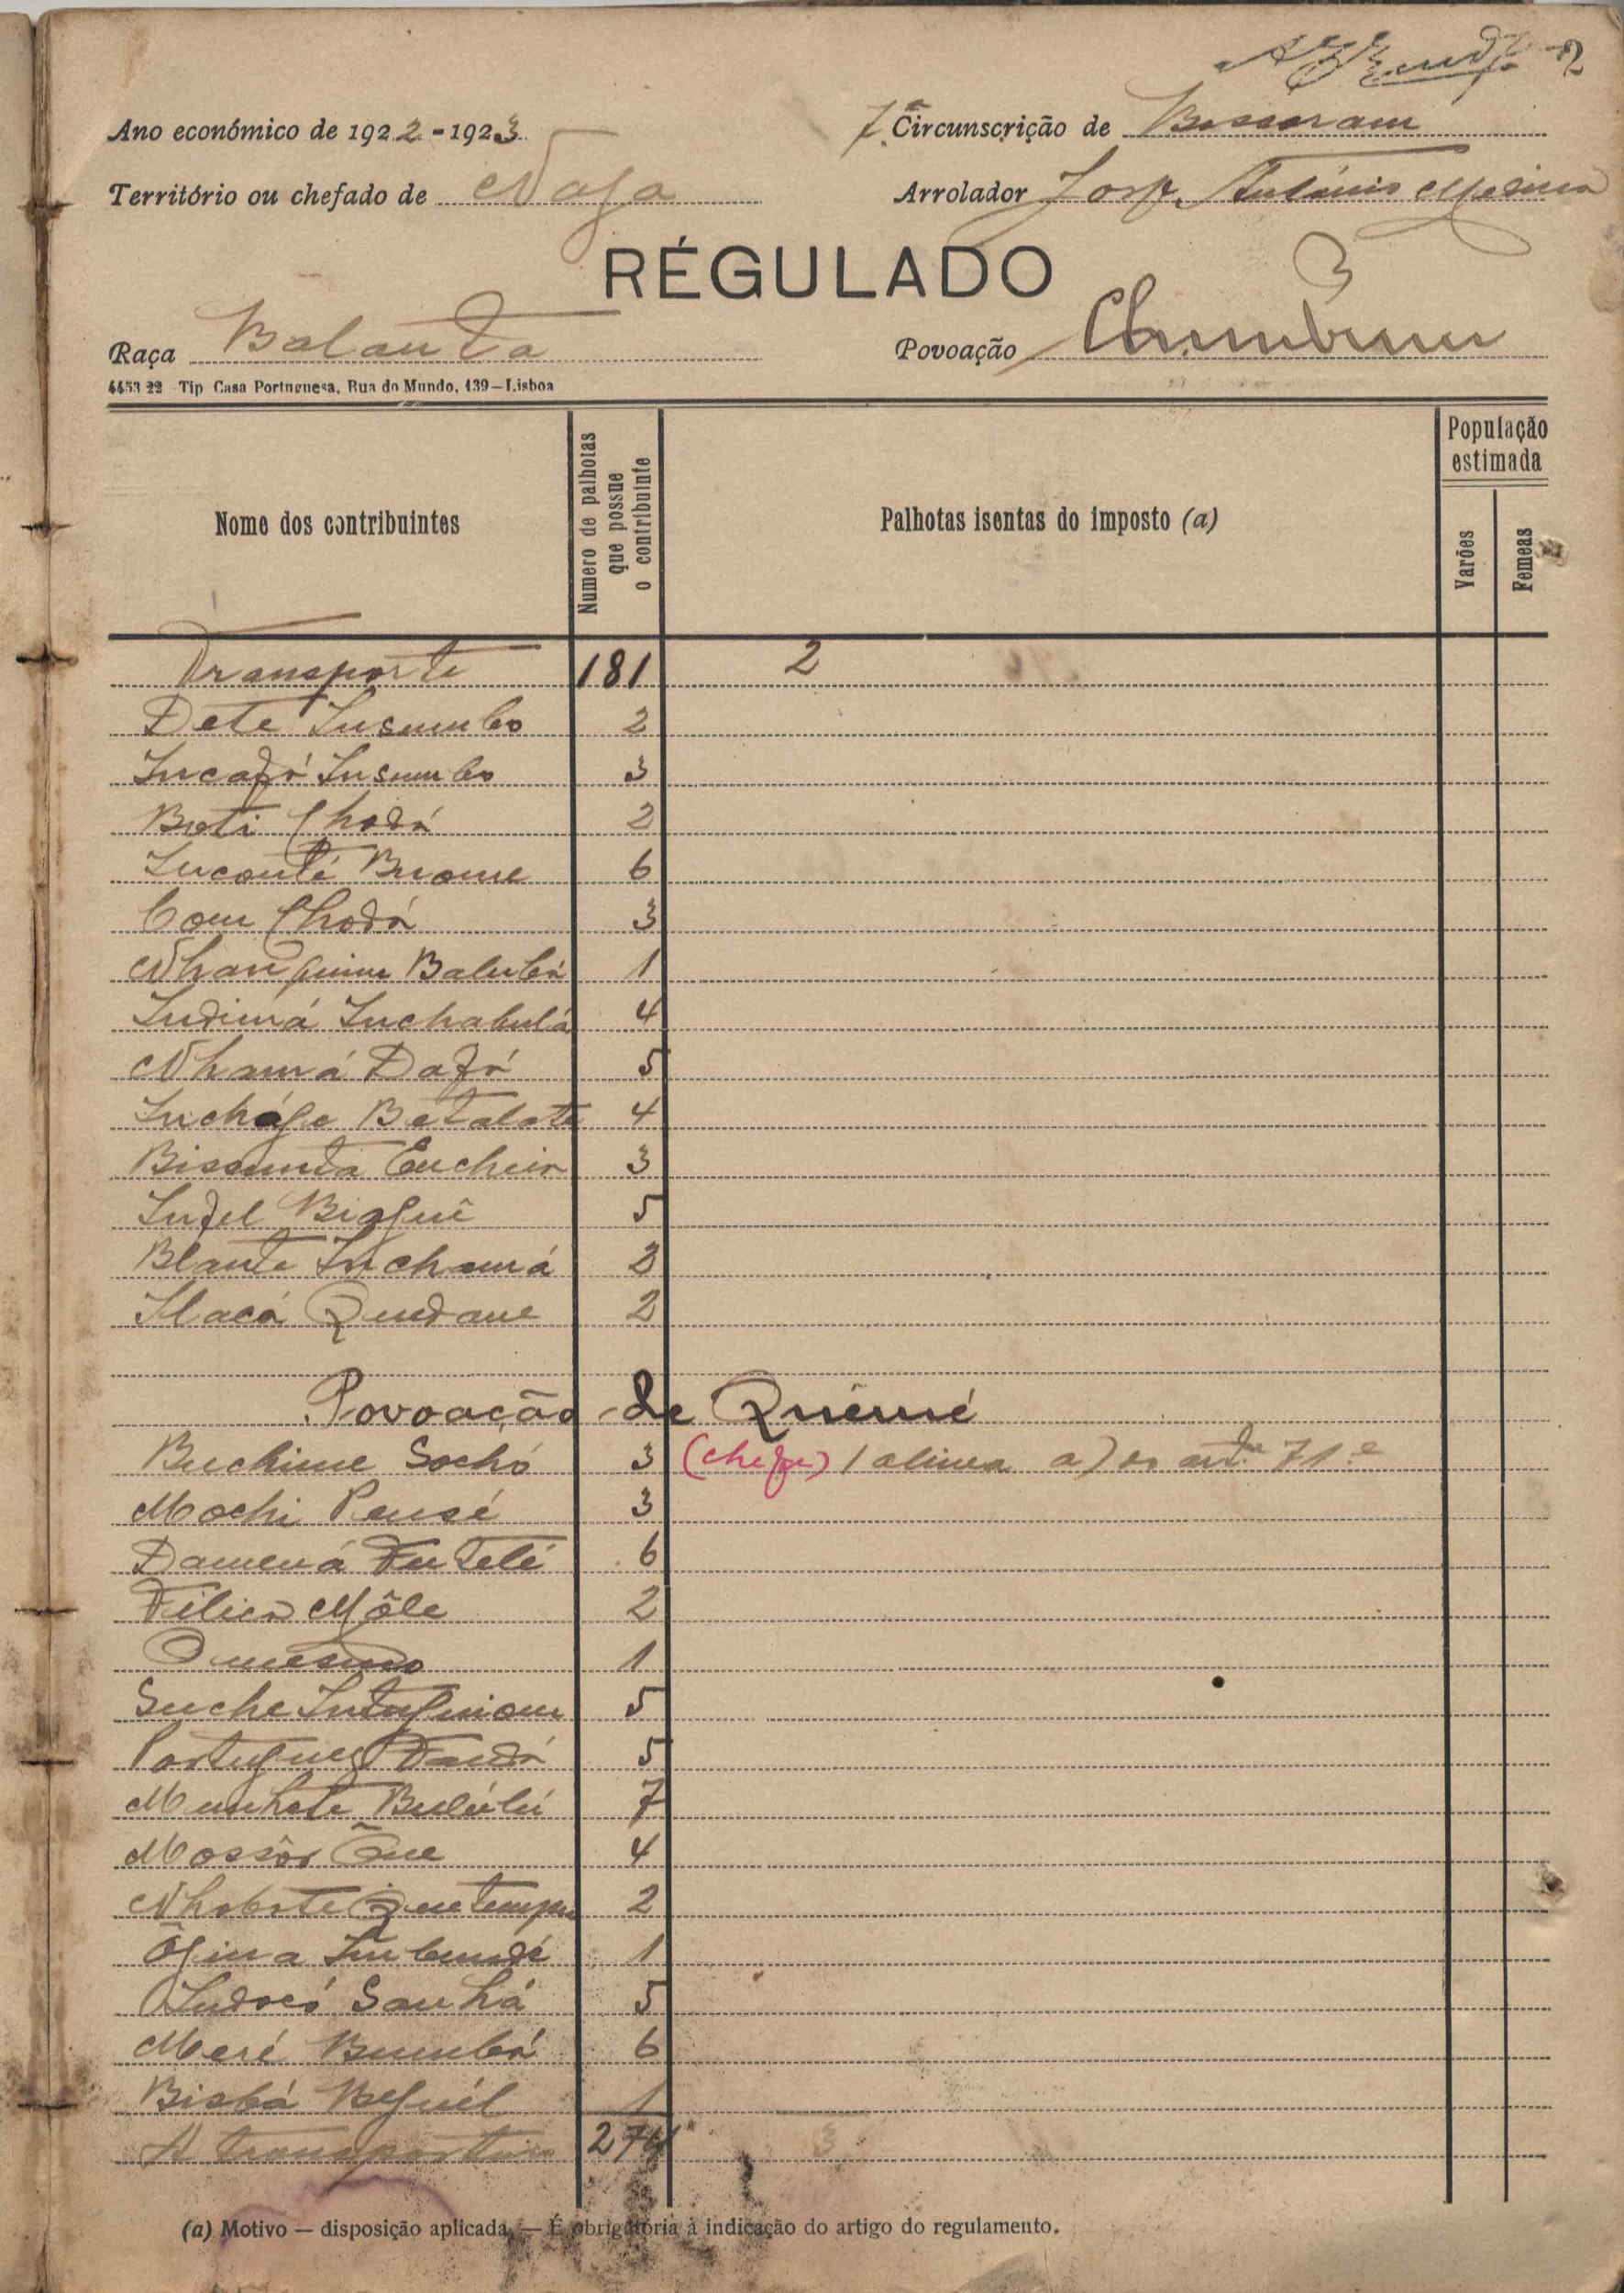 2
Ano económico de 1922-1923
7ª Circunscrição de Bissoram
Território ou chefado de Naga
Arrolador José António
RÉGULADO
3
Raça Balanta
Povoação Chumbum
4453 22 Tip Casa Portuguesa, Rua do Mundo, 139—Lisboa
Nome dos contribuintes
Numero de palhotas que possue o contribuinte
Palhotas isentas do imposto (a)
População estimada
Varões
Femeas
Transporte 181 2
Dete Insumbo 2
Incafó Insumbo 3
Boti Chodá 2
Inconté Buome 6
Com Chodá 3
Nhan quim Balubá 1
Indimá Inchabulá 4
Nhamá Dafá 5
Inchágo Betalote 4
Bissunta Enchein 3
Infel Biaguê 5
Blante Inchamá 2
Ilacá Quidane 2
Povoação de Quenué
Buchime Sochó 3 (chefe) (alinea a) do artº 71º
Mochi Pensé 3
Damená Fu Telé 6
Môle 2
O mesmo 1
Suche 5
Portuguez Fandá 5
Munhote Bulúlú 7
Mossôr Õue 4
Nhobote 2
Õgina Imbundé 1
Indocó Sanhá 5
Meré Bumbá 6
Bisbá Beguél 1
A transportar 274 3
(a) Motivo — disposição aplicada. — É obrigatória a indicação do artigo do regulamento.